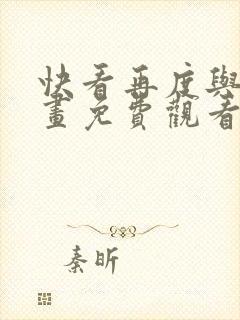 快看再度與
畫免費觀看
秦昕